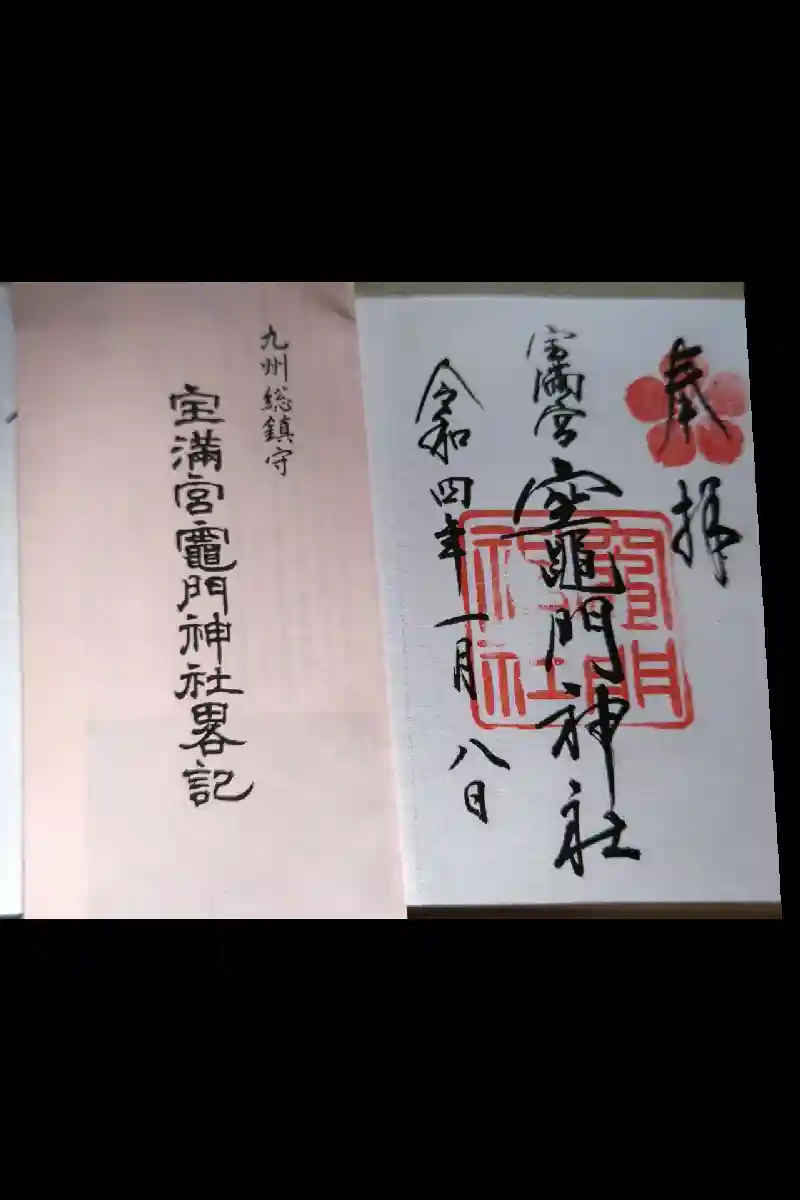 奉拝
宝満宮
竈門神社
竈門神社
令和四年一月八日
九州総鎮守
宝満宮竈門神社畧記